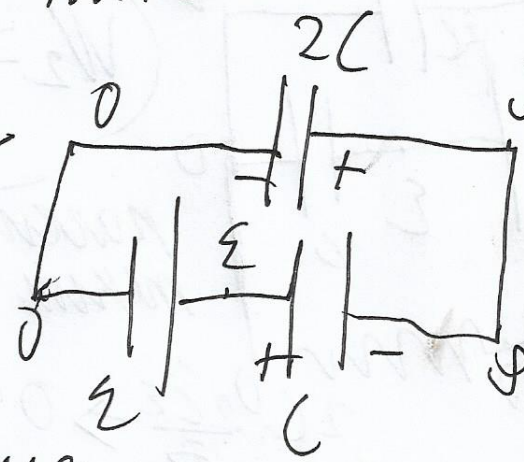 2C
0
- +
ε
0
+ -
φ
ε
C